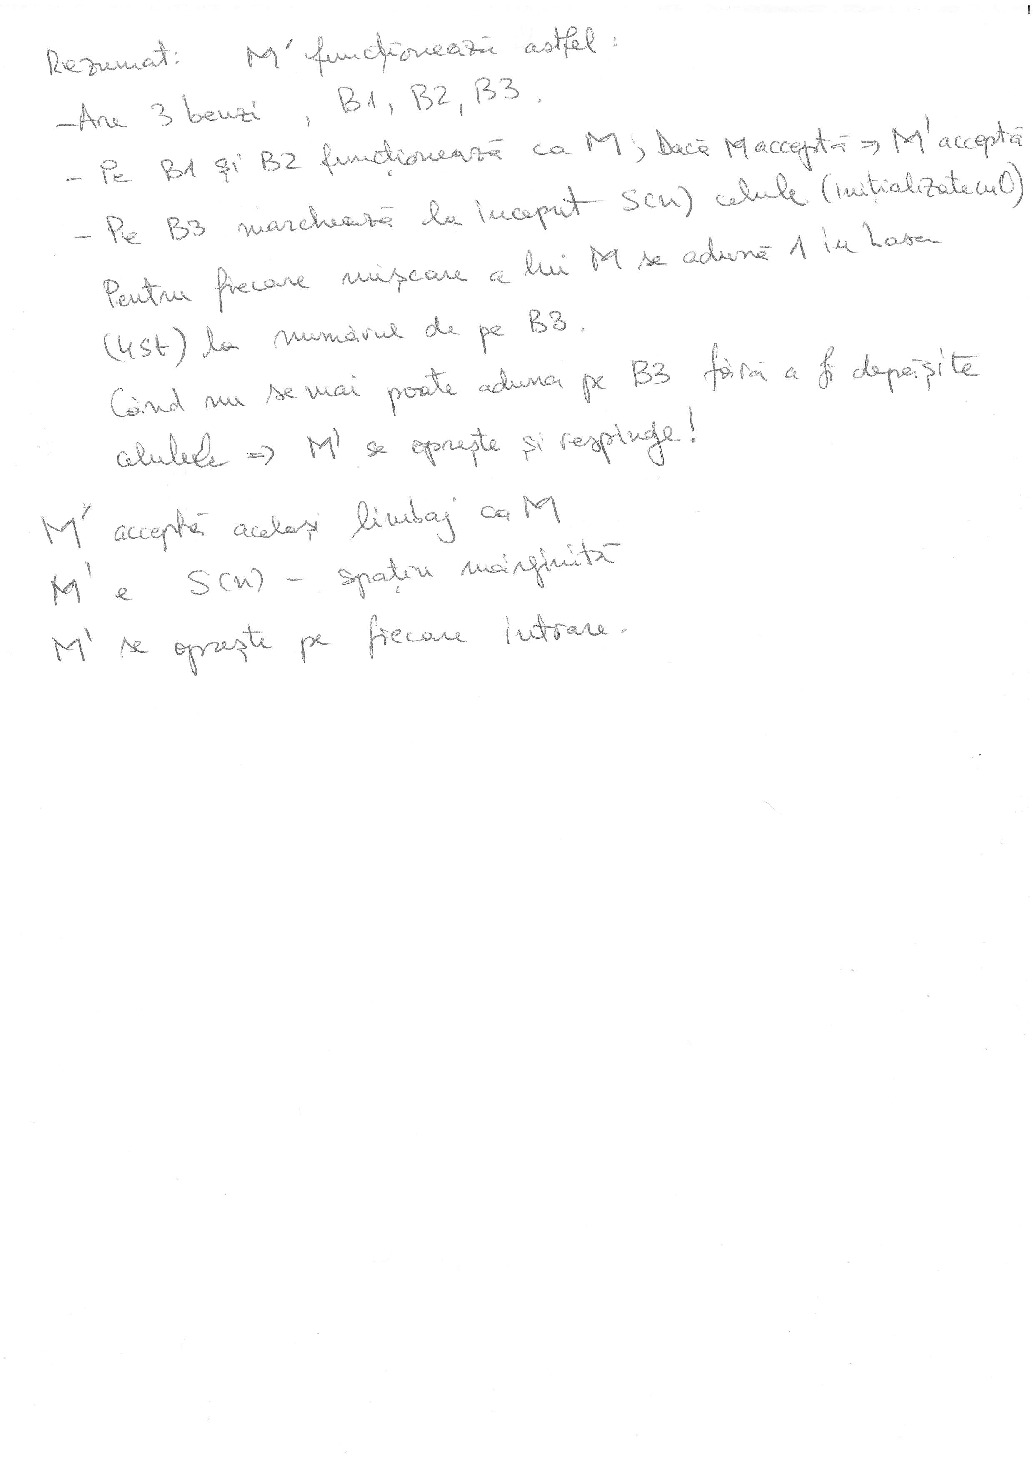 Rezumat: M' funcționează astfel:
- Are 3 benzi, B1, B2, B3.
- Pe B1 și B2 funcționează ca M; Dacă M acceptă => M' acceptă
- Pe B3 marchează la început S(n) celule (inițializate cu 0)
Pentru fiecare mișcare a lui M se adună 1 în baza
(4st) la numărul de pe B3.
Când nu se mai poate aduna pe B3 fără a fi depășite
celulele => M' se oprește și respinge!
M' acceptă același limbaj ca M
M' e S(n) - spațiu mărginită
M' se oprește pe fiecare intrare.